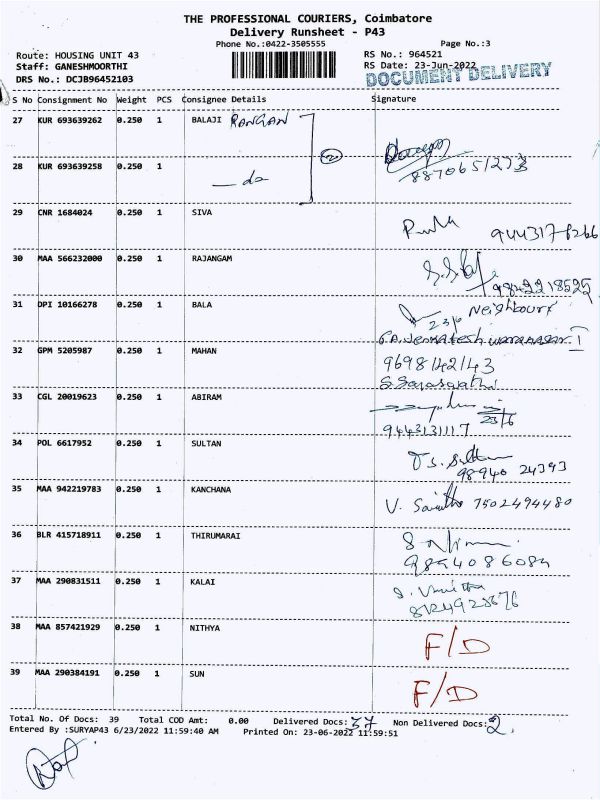 THE PROFESSIONAL COURIERS, Coimbatore
Delivery Runsheet - P43
Phone No.:0422-3505555 Page No.:3
Route: HOUSING UNIT 43 RS No.: 964521
Staff: GANESHMOORTHI RS Date: 23-Jun-2022
DRS No.: DCJB96452103 DOCUMENT DELIVERY
S No Consignment No Weight PCS Consignee Details Signature
27 KUR 693639262 0.250 1 BALAJI RANGAN
28 KUR 693639258 0.250 1 2
— do 8870651273
29 CNR 1684024 0.250 1 SIVA
30 MAA 566232000 0.250 1 RAJANGAM
9842218525
31 DPI 10166278 0.250 1 BALA Neighbour
23/6
32 GPM 5205987 0.250 1 MAHAN
9698142143
33 CGL 20019623 0.250 1 ABIRAM
23/6
9443131117
34 POL 6617952 0.250 1 SULTAN
98940 24393
35 MAA 942219783 0.250 1 KANCHANA
7502494480
36 BLR 415718911 0.250 1 THIRUMARAI
37 MAA 290831511 0.250 1 KALAI
38 MAA 857421929 0.250 1 NITHYA F/D
39 MAA 290384191 0.250 1 SUN F/D
Total No. Of Docs: 39 Total COD Amt: 0.00 Delivered Docs: 37 Non Delivered Docs: 2
Entered By :SURYAP43 6/23/2022 11:59:40 AM Printed On: 23-06-2022 11:59:51